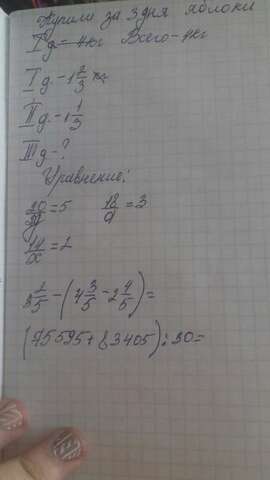 Купили за 3 дня яблоки
I д - 4кг Всего - 4кг
I д. - 1 2/3 кг
II д - 1 1/3
III д - ?
Уравнение:
20/y = 5 18/a = 3
14/x = 2
(4 3/5 - 2 4/5) =
) : 30 =